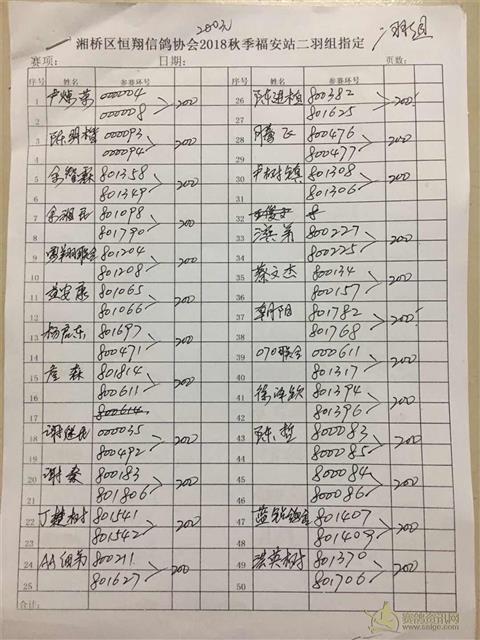 200元
二羽组
湘桥区恒翔信鸽协会2018秋季福安站二羽组指定
赛项: 日期: 页数:
序号 姓名 参赛环号 序号 姓名 参赛环号
1 000004 200 26 陈进植 800382 200
2 000008 27 801625
3 陈明楷 000093 200 28 腾飞 800476 200
4 000094 29 800477
5 余智霖 801358 200 30 尹树镇 801308 200
6 801349 31 801306
7 余湘民 801098 200 32
8 801790 33 洪弟 800227 200
9 翔联合 801204 200 34 800225
10 801208 35 蔡文杰 800134 200
11 益安康 801065 200 36 800157
12 801066 37 朝阳 801782 200
13 杨启东 801697 200 38 801768
14 800471 39 070联合 000611 200
15 森 801814 200 40 801317
16 800611 41 徐泽钦 801394 200
17 800614 42 801396
18 谢继民 000035 200 43 陈哲 800083 200
19 800492 44 800085
20 谢桑 800183 200 45 800084 200
21 801806 46 800086
22 丁楚树 801541 200 47 蓝钻鸽舍 801407 200
23 801542 48 801409
24 AA兄弟 800211 200 49 洪英树 801370 200
25 801627 50 801706
合计:
赛鸽资讯网
www.saige.com